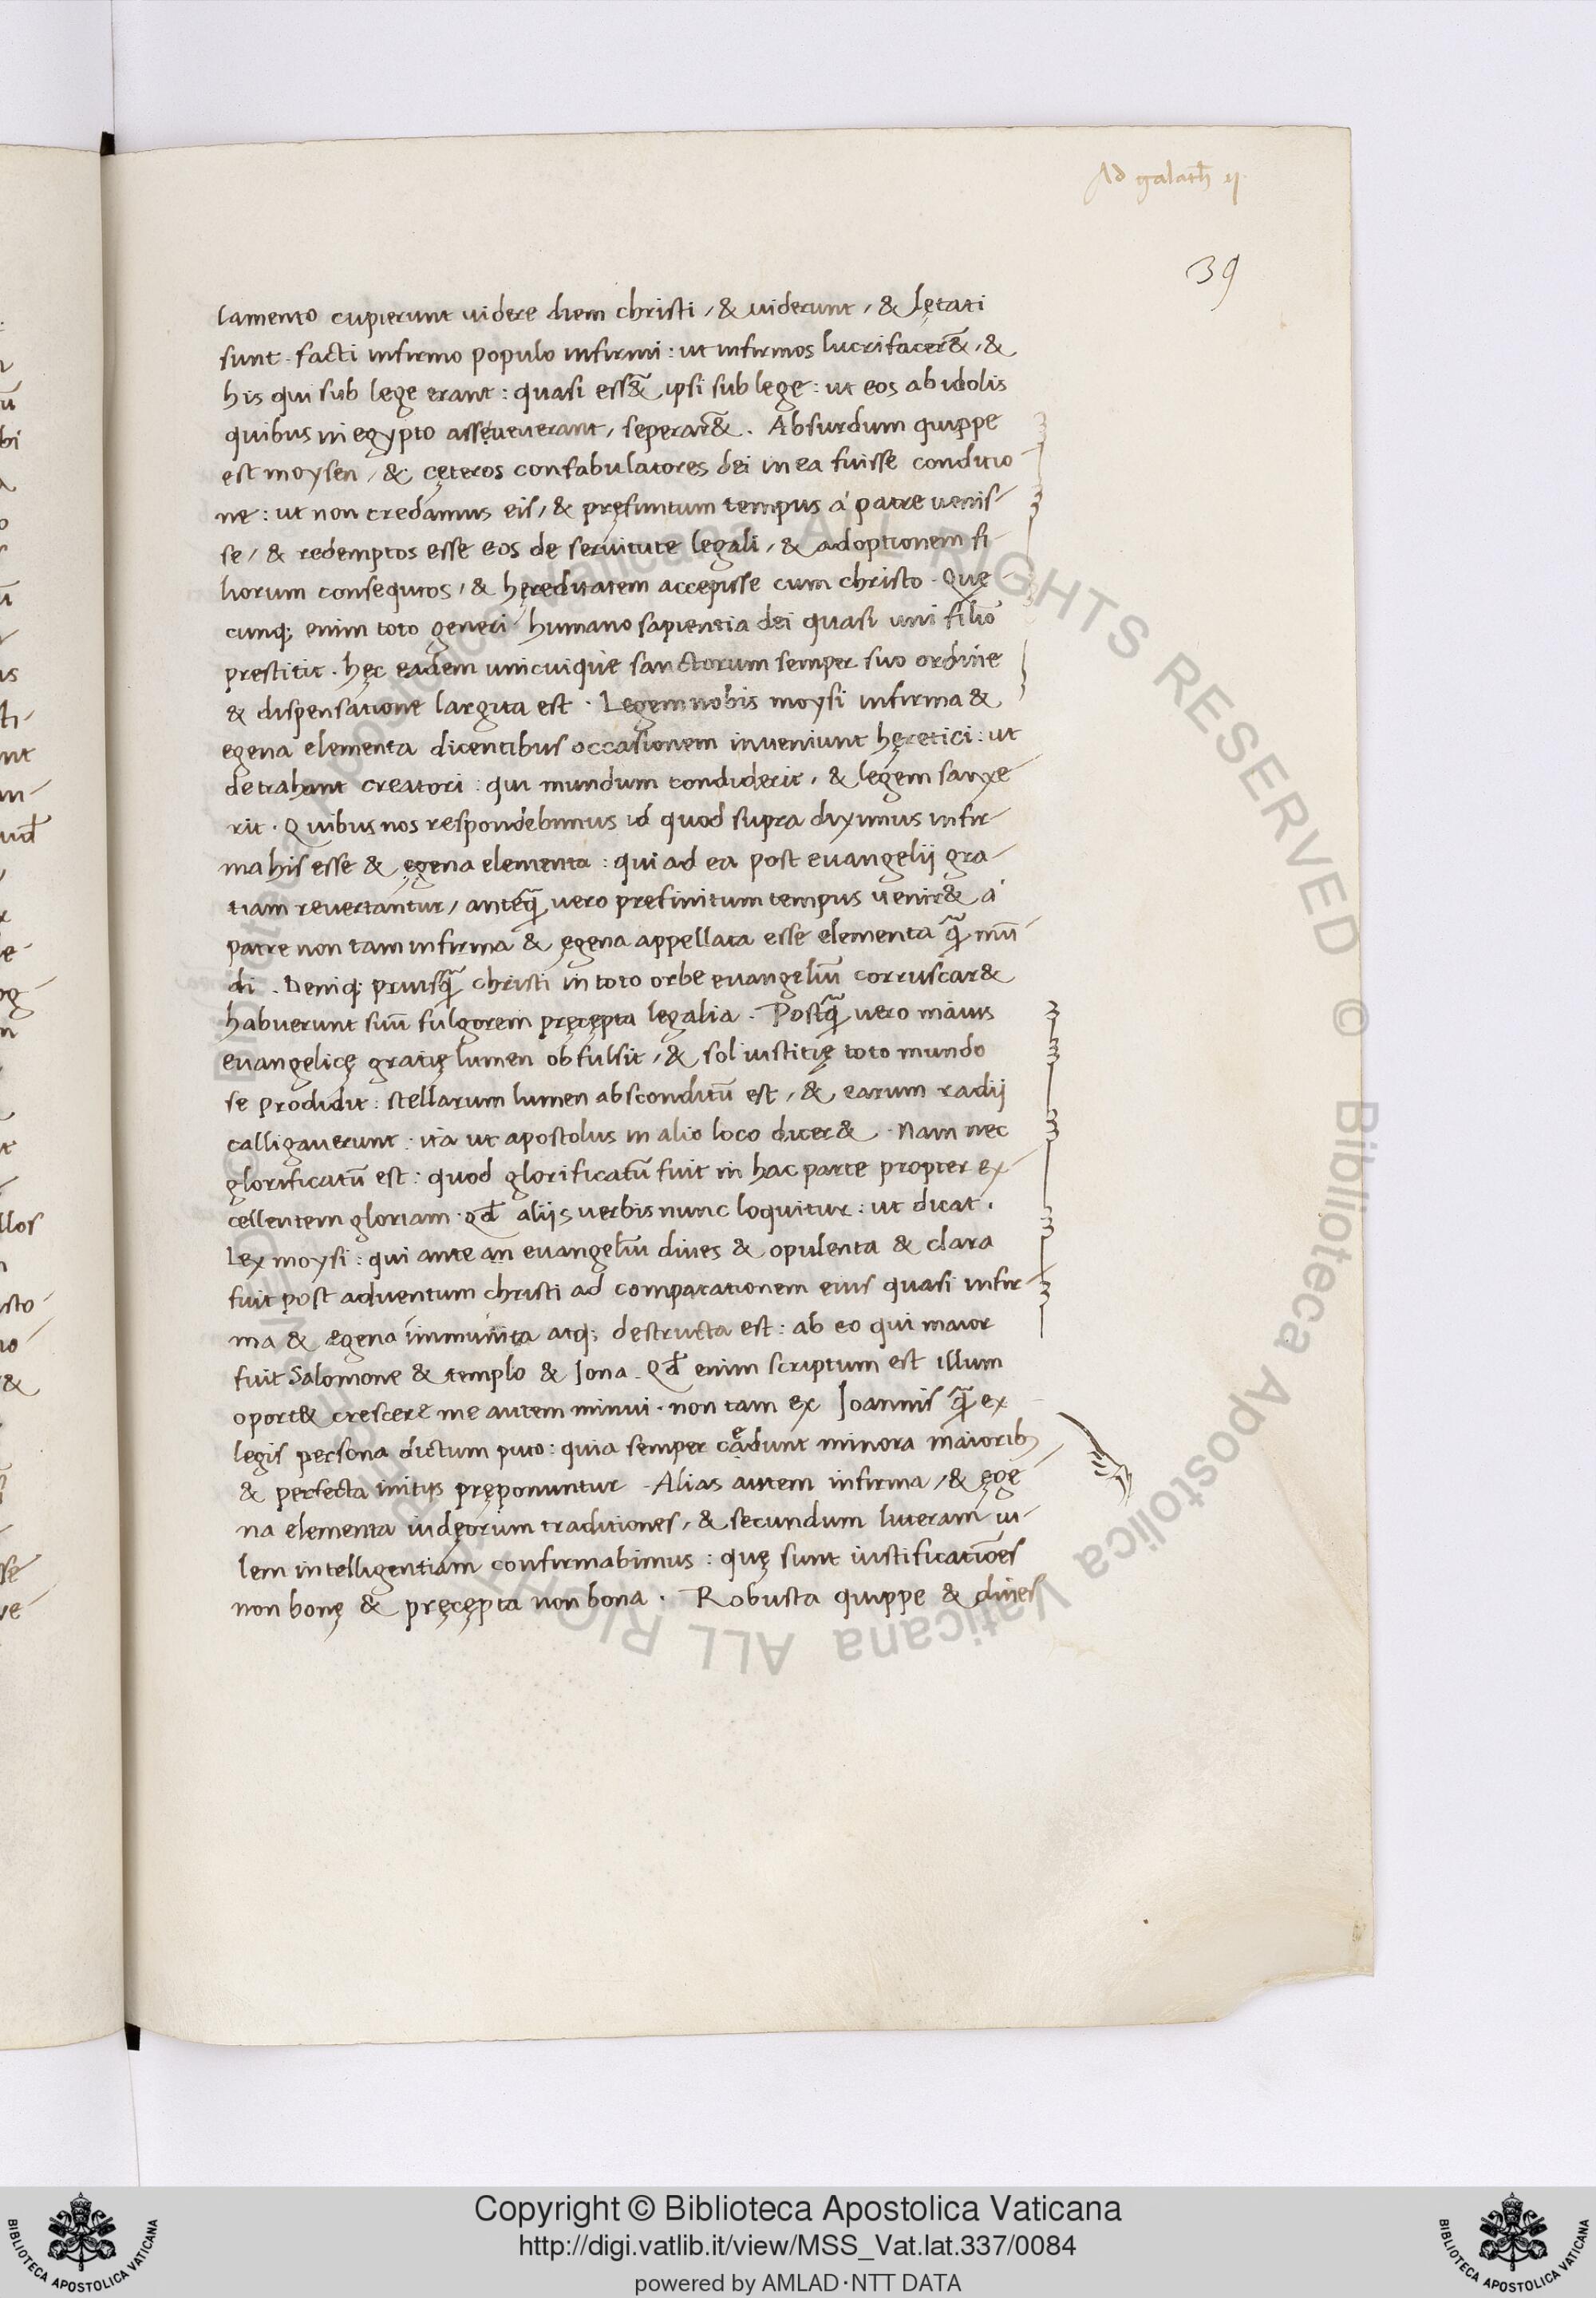 Ad galath̄ ij.
39
lamento cupierunt uidere diem christi, & uiderunt, & lętati
sunt. facti infirmo populo infirmi: ut infirmos lucrifacer&̄, &
his qui sub lege erant: quasi ess&̄ ipsi sub lege: ut eos ab idolis
quibus in egypto assęueuerant, seperar&̄. Absurdum quippe
est moysen, & cęteros confabulatores dei in ea fuisse conditio-
ne: ut non credamus eis, & pręfinitum tempus á patre uenis-
se, & redemptos esse eos de seruitute legali, & adoptionem fi-
liorum consequtos, & hęreditatem accepisse cum christo. Quę-
cunq; enim toto generi humano sapientia dei quasi uni filio
prestitit. hęc eadem unicuique sanctorum semper suo ordine
& dispensatione largita est. Legem nobis moysi infirma &
egena elementa dicentibus occasionem inueniunt hęretici: ut
detrahant creatori: qui mundum condiderit, & legem sanxe-
rit. Quibus nos respondebimus id quod supra diximus infir-
ma his esse & ęgena elementa: qui ad ea post euangelij gra-
tiam reuertantur, anteq̄ uero prefinitum tempus uenir& á
patre non tam infirma & ęgena appellata esse elementa q̄ mū-
di. Deniq; priusq̄ christi in toto orbe euangeliū corruscar&
habuerunt suū fulgorem pręcępta legalia. Postq̄ uero maius
euangelicę gratię lumen obfulsit, & sol iustitię toto mundo
se prodidit: stellarum lumen absconditū est, & earum radij
calligauerunt. ita ut apostolus in alio loco dicer&. Nam nec
glorificatū est: quod glorificatū fuit in hac parte propter ex-
cellentem gloriam. qd̄ aliis uerbis nunc loquitur: ut dicat.
Lex moysi: qui ante an euangeliū diues & opulenta & clara
fuit post aduentum christi ad comparationem eius quasi infir-
ma & egena imminita atq; destructa est: ab eo qui maior
fuit Salomone & templo & Iona. Qd̄ enim scriptum est illum
oport& crescere me autem minui. non tam ex Ioannis q̄ ex
legis persona dictum puto: quia semper cędunt minora maiorib;
& perfecta initijs pręponuntur. Alias autem infirma, & ęge-
na elementa iudęorum traditiones, & secundum litteram ui-
lem intelligentiam confirmabimus: quę sunt iustificatiōes
non bonę & pręcępta non bona. Robusta quippe & diues
Copyright © Biblioteca Apostolica Vaticana
http://digi.vatlib.it/view/MSS_Vat.lat.337/0084
powered by AMLAD·NTT DATA